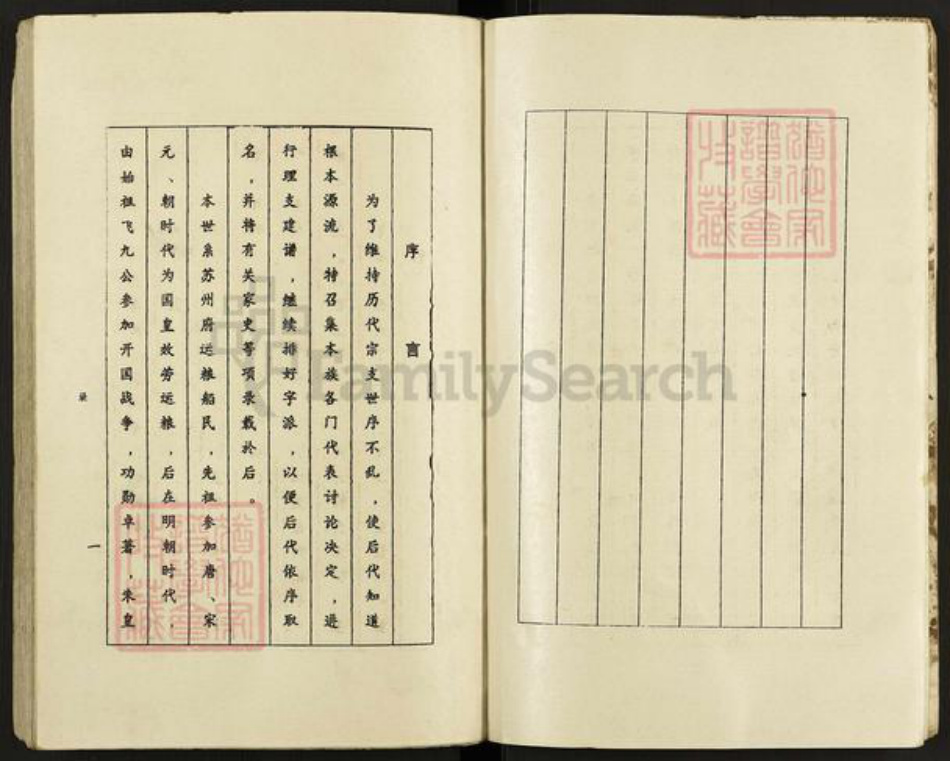 序言
为了维持历代宗支世序不乱，使后代知道
根本源流，特召集本族各门代表讨论决定，进
行理支建谱，继续排好字派，以便后代依序取
名，并将有关家史等项录载於后。
本世系苏州府运粮船民，先祖参加唐、宋
元、朝时代为国皇效劳运粮，后在明朝时代，
由始祖飞九公参加开国战争，功勋卓著，朱皇
录
一
FamilySearch
猶他家
譜學會
收藏
猶他家
譜學會
收藏